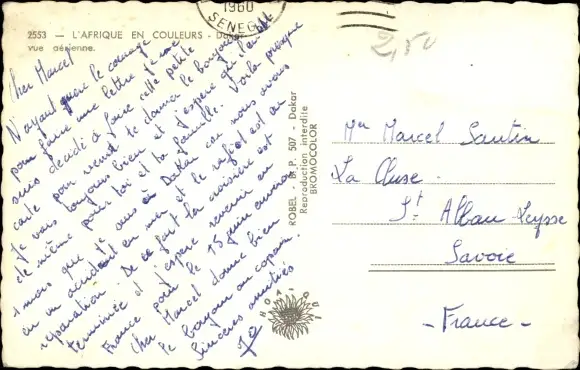 2553 — L'AFRIQUE EN COULEURS - Dakar
vue aérienne.
1960
SENEGAL
2,50
Cher Marcel
N'ayant guère le courage
pour faire une lettre je me
suis décidé à faire cette petite
carte pour venir te donner le bonjour
Je vais toujours bien et j'espère qu'il en est
de même pour toi et ta famille. Voilà presque
1 mois que je suis à Dakar car nous avons
eu un accident en mer et le rafiot est en
réparation. De ce fait la croisière est
terminée et j'espère revenir en
France pour le 15 juin environ
Cher Marcel donne bien
le bonjour au copain.
Sincères amitiés
ROBEL - B. P. 507 - Dakar
Reproduction interdite
BROMOCOLOR
Mr Marcel Sautin
La Cluse
St Alban Leysse
Savoie
- France -